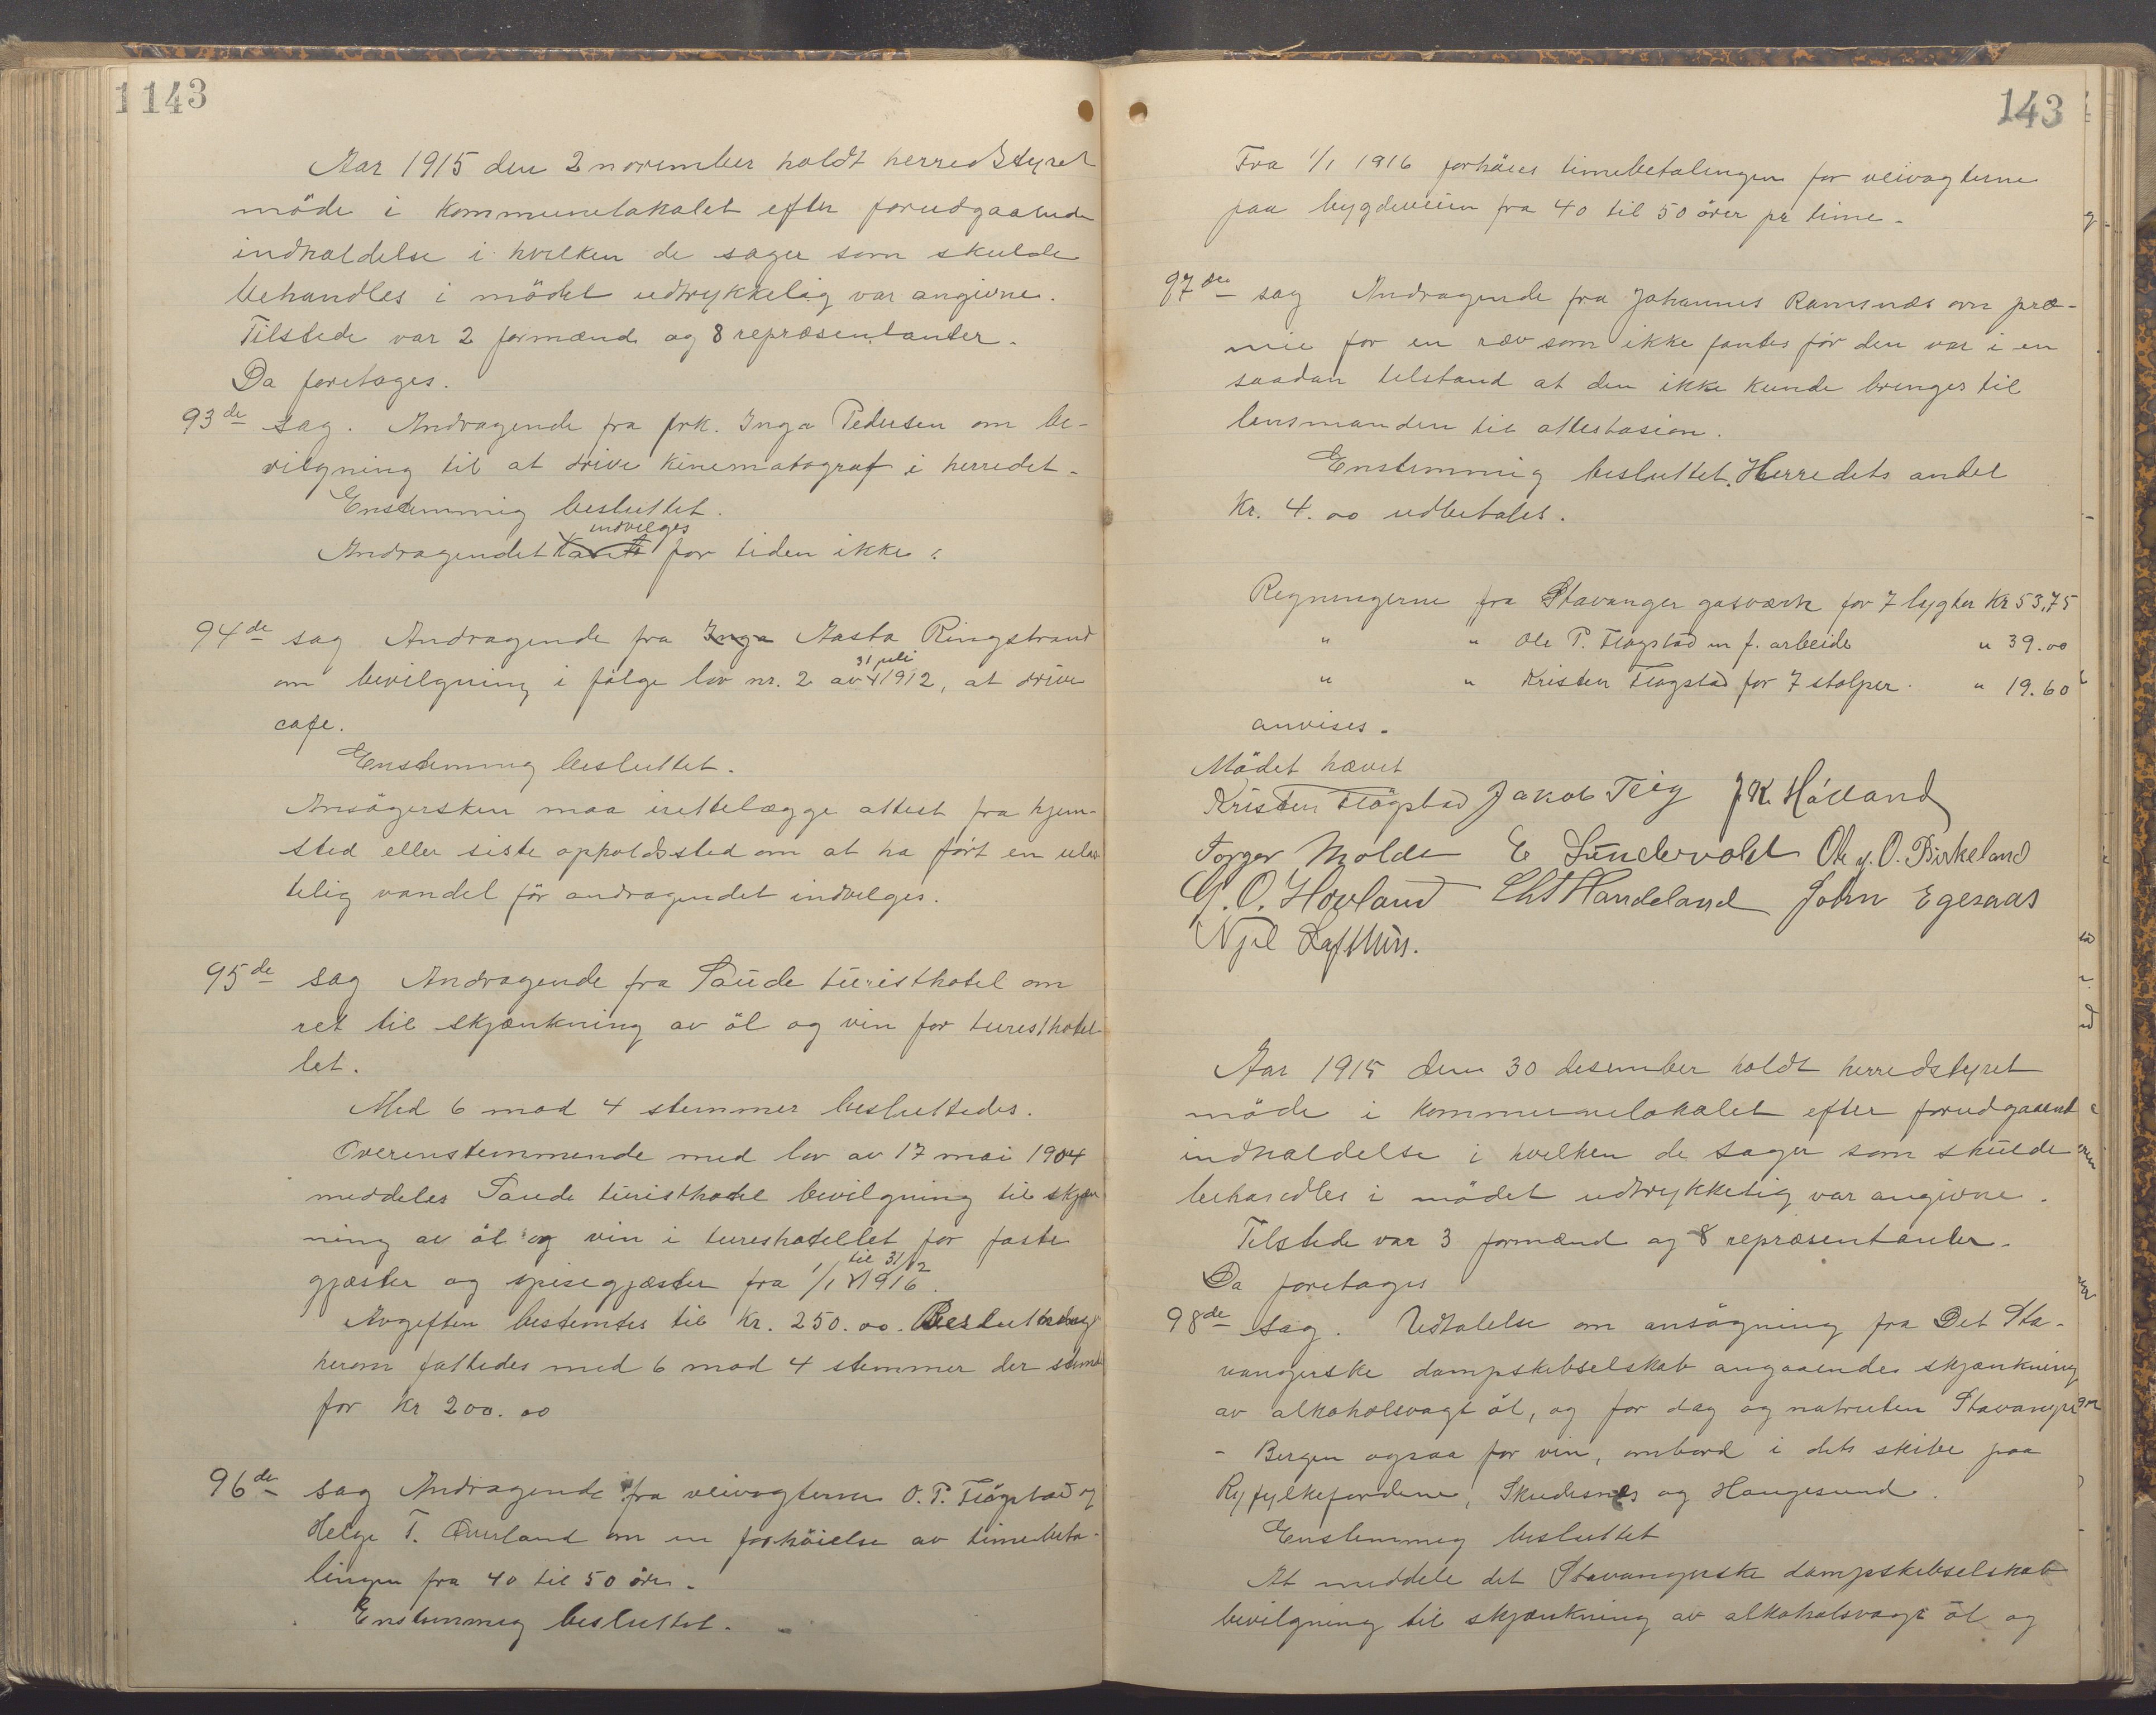 1143
Aar 1915 den 2 november holdt herredstyret
möde i kommunelokalet efter forudgaaende
indkaldelse i hvilken de sager som skulde
behandles i mödet udtrykkelig var angivne.
Tilstede var 2 formænd og 8 repræsentanter.
Da foretages.
93de sag. Andragende fra frk. Inga Pedersen om be-
vilgning til at drive kinematograf i herredet.
Enstemmig besluttet.
indvilges
Andragendet for tiden ikke.
94de sag Andragende fra Inga Aasta Ringstrand
31 juli
om bevilgning i fölge lov nr. 2 av 1912, at drive
cafe.
Enstemmig besluttet.
Ansögersken maa irettelægge attest fra hjem-
sted eller siste opholdssted om at ha fört en ulas
telig vandel för andragendet indvilges.
95de sag Andragende fra Saude turisthotel om
ret til skjænkning av öl og vin for turisthotel
let.
Med 6 mod 4 stemmer besluttedes.
Overenstemmende med lov av 17 mai 1904
meddeles Saude turisthotel bevilgning til skjæn
ning av öl og vin i tureshotellet for faste
til 31/12
gjæster og spisegjæster fra 1/1 1916.
Avgiften bestemtes til Kr. 250.00. Beslutning
herom fattedes med 6 mod 4 stemmer der stemte
for Kr 200.00
96de sag Andragende fra veivogterne O. P. Flögstad og
Helge T. Overland om en forhöielse av timebeta-
lingen fra 40 til 50 öre.
Enstemmig besluttet.
143
Fra 1/1 1916 forhöies timebetalingen for veivogterne
paa bygdeveien fra 40 til 50 örer pr time.
97de sag Andragende fra Johannes Ramsnæs om præ-
mie for en ræv som ikke fantes för den var i en
saadan tilstand at den ikke kunde bringes til
lensmanden til attestasion.
Enstemmig besluttet. Herredets andel
Kr. 4.00 udbetales.
Regningerne fra Stavanger gasværk for 7 lygter Kr 53,75
" " Ole P. Flögstad m f. arbeide " 39.00
" " Kristen Flögstad for 7 stolper. " 19.60
anvises.
Mödet hævet
Kristen Flögstad Jakob Teig J. K. Hålland
Torger Molde E Sundervold Ole g. O. Birkeland
G. O. Hovland Cht Handeland John Egesaas
Njel Lofthus.
Aar 1915 den 30 desember holdt herredstyret
möde i kommunelokalet efter forudgaaend
indkaldelse i hvilken de sager som skulde
behandles i mödet udtrykkelig var angivne.
Tilstede var 3 formænd og 8 repræsentanter.
Da foretages
98de sag. Udtalelse om ansögning fra Det Sta-
vangerske dampskibselskab angaaende skjænkning
av alkoholsvagt öl, og for dag og natruten Stavanger
- Bergen ogsaa for vin, ombord i dets skibe paa
Ryfylkefjordene, Skudesnes og Haugesund.
Enstemmig besluttet
At meddele det Stavangerske dampskibselskab
bevilgning til skjænkning av alkoholsvagt öl og